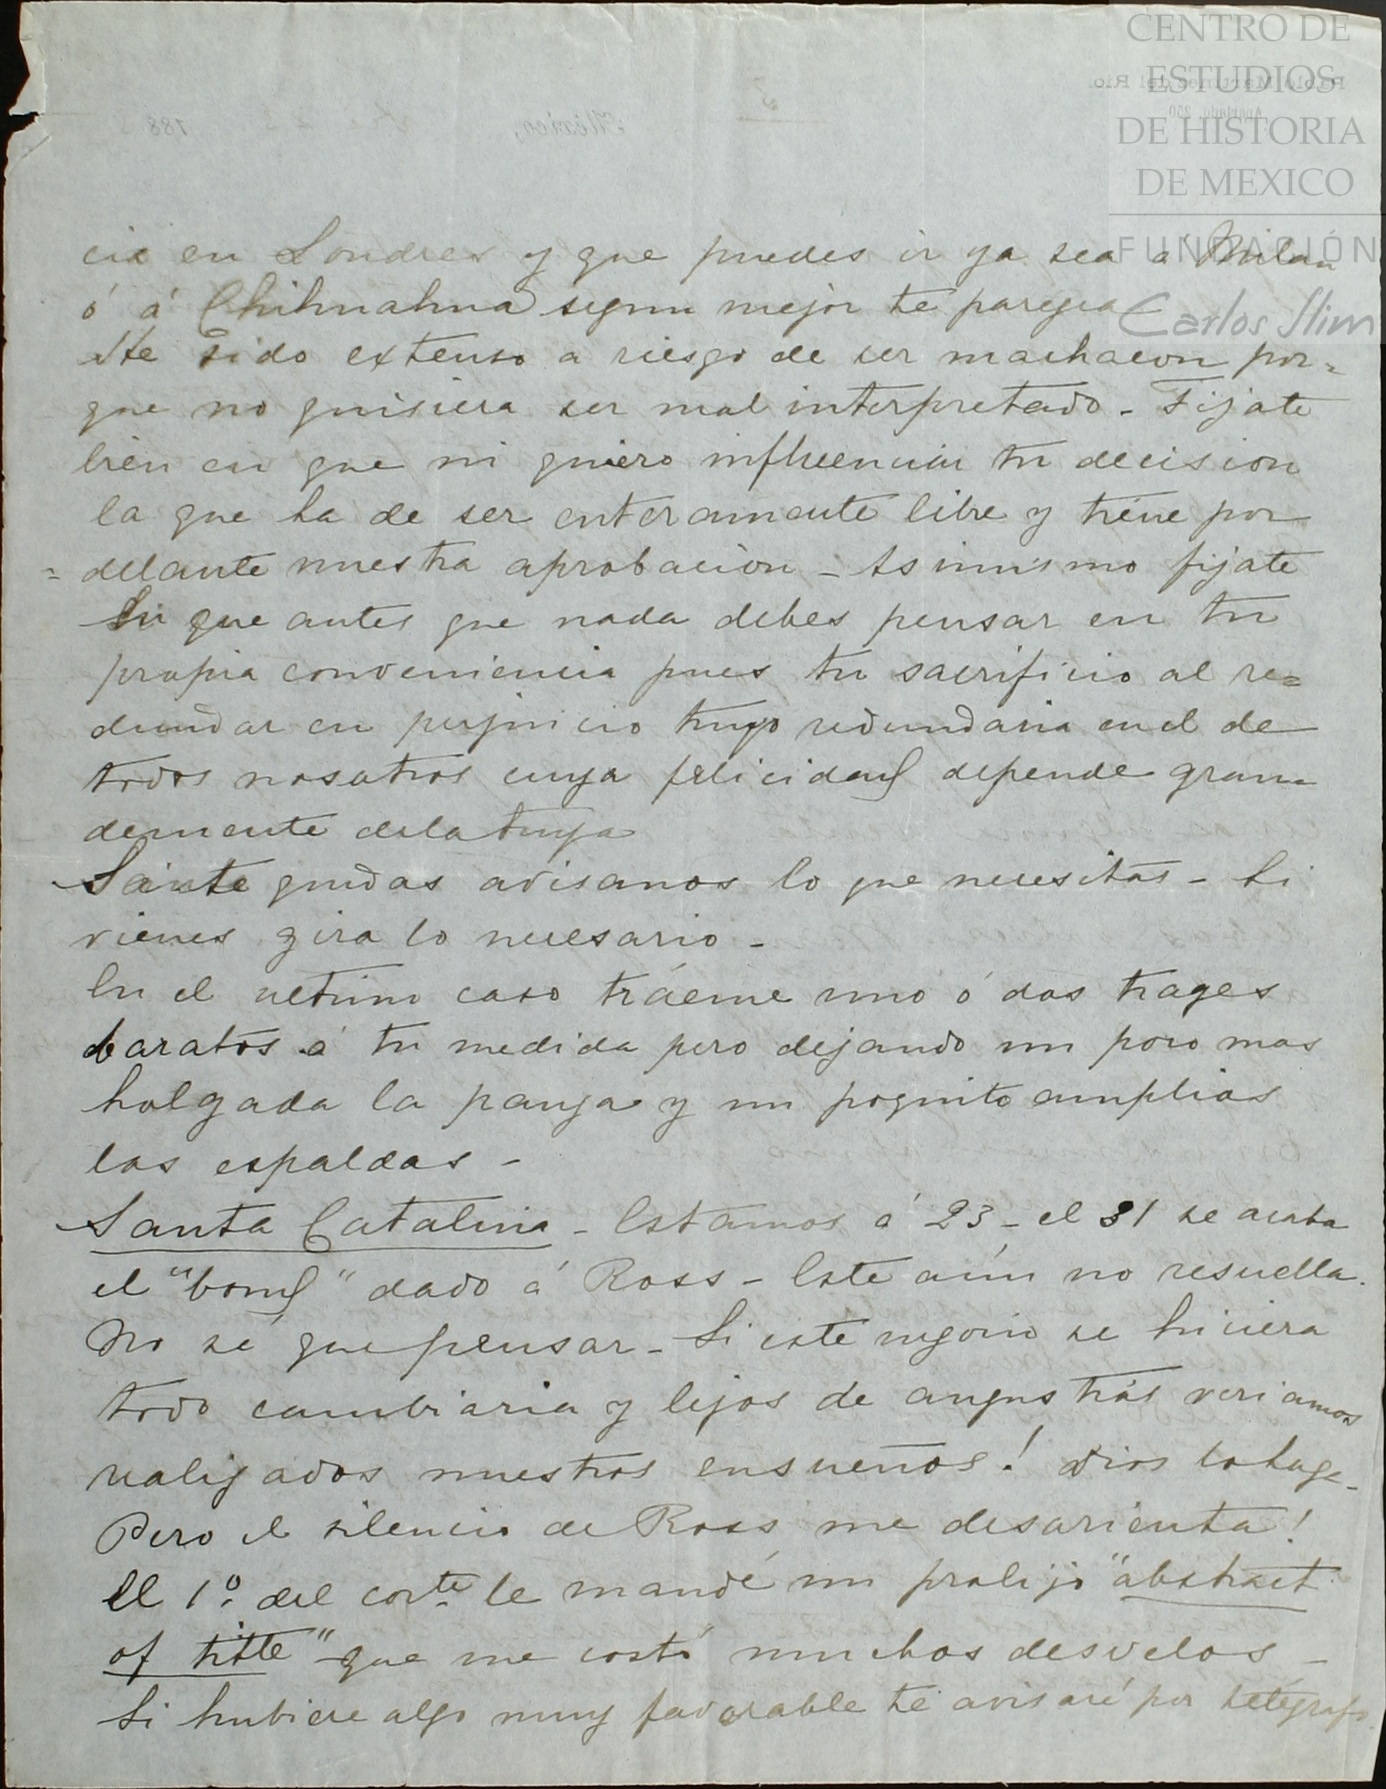 CENTRO DE
ESTUDIOS
DE HISTORIA
DE MEXICO
FUNDACIÓN
Carlos Slim
Pablo Martinez del Rio.
México, 188
cia en Londres y que puedes ir ya sea a Milan
ó á Chihuahua segun mejor te paresca
He sido extenso a riesgo de ser machacon por=
que no quisiera ser mal interpretado - Fijate
bien en que ni quiero influenciar tu decision
la que ha de ser enteramente libre y tiene por
= delante nuestra aprobación - Asimismo fijate
en que antes que nada debes pensar en tu
propia conveniencia pues tu sacrificio al re=
dundar en perjuicio tuyo redundaria en el de
todos nosotros cuya felicidad depende gran=
demente dela tuya
Siinte quedas avisanos lo que necesitas - Si
vienes gira lo necesario -
En el ultimo caso tráeme uno ó dos trages
baratos á tu medida pero dejando un poco mas
holgada la panza y un poquito amplias
las espaldas -
Santa Catalina - Estamos á 23 - el 31 se acaba
el "bond" dado á Ross - Este aún no resuella.
No sé que pensar - Si este negocio se hiciera
todo cambiaria y lejos de angustias veriamos
realizados nuestros ensueños! Dios lo haga -
Pero el silencio de Ross me desorienta!
El 1º del corte le mandé un prolijo "abstract
of title" que me costó muchos desvelos -
Si hubiere algo muy favorable te avisaré por telégrafo